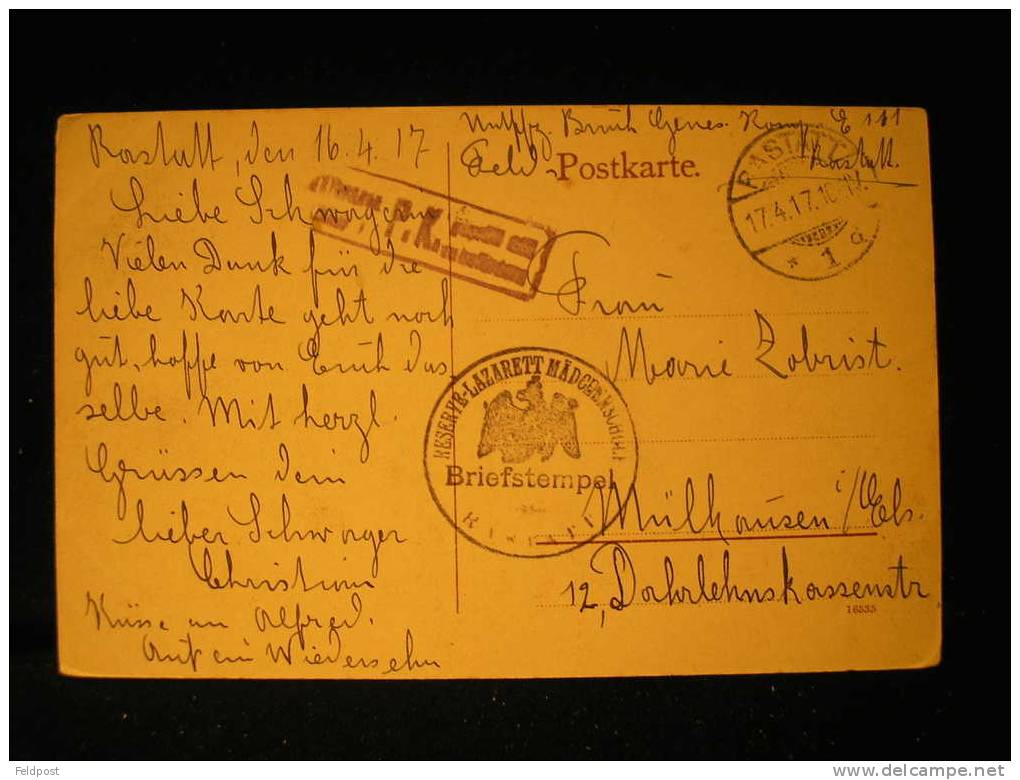 Rastatt, den 16.4.17
Liebe Schwägerin
Vielen Dank für die
liebe Karte geht noch
gut, hoffe von Euch das
selbe. Mit herzl.
Grüssen dein
lieber Schwager
Christian
Küsse an Alfred.
Auf ein Wiedersehn
Genes. Komp. E 111
Rastatt.
Feld Postkarte.
P.K.
RASTATT
17.4.17.
* 1 a
Frau
Marie Zobrist.
RESERVE-LAZARETT MÄDCHENSCHULE
Briefstempel
RASTATT
Mülhausen i/Els.
12, Dahrlehnskassenstr
16535
Feldpost
delcampe.net